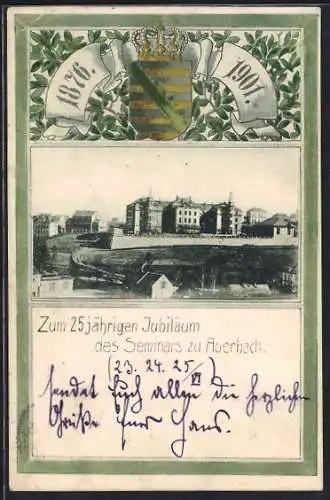 1876.
1901.
Zum 25jährigen Jubiläum
des Seminars zu Auerbach.
(23. 24. 25/VI)
sendet Euch allen die herzlichen
Grüße Euer Hans.